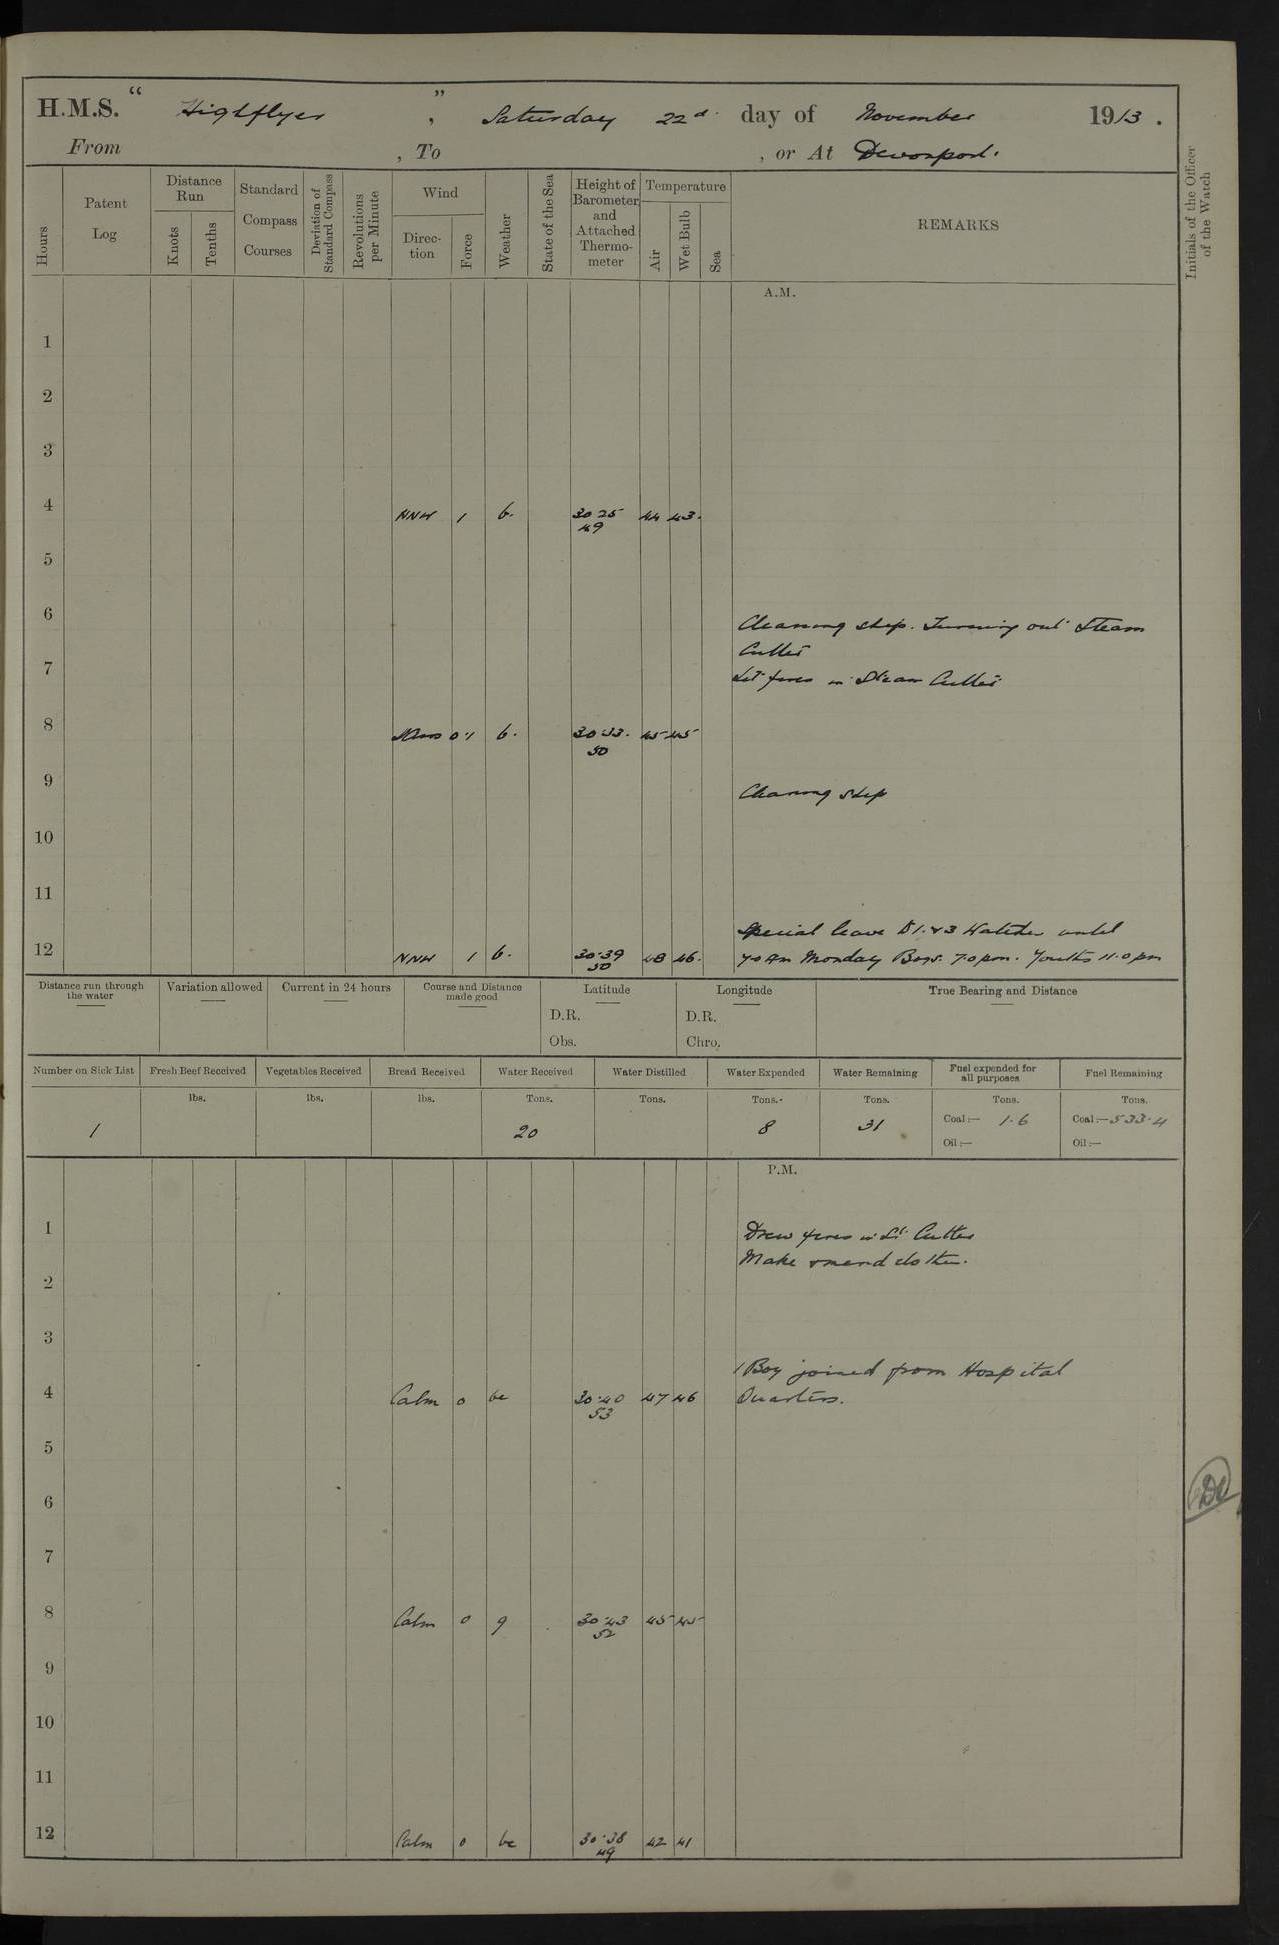 H.M.S. “ Highflyer ” , Saturday 22d. day of November 1913 .
From , To , or At Devonport.
Hours
Patent Log
Distance Run
Knots
Tenths
Standard Compass Courses
Deviation of Standard Compass
Revolutions per Minute
Wind
Direction
Force
Weather
State of the Sea
Height of Barometer and Attached Thermometer
Temperature
Air
Wet Bulb
Sea
REMARKS
Initials of the Officer of the Watch
A.M.
1
2
3
4 NNW 1 b. 30 25 44 43.
49
5
6 Cleaning ship. Turning out Steam
Cutter
7 Lit fires in Steam Cutter
8 0.1 b. 30.33. 45 45
50
9 Cleaning ship
10
11
Special leave to 1. & 3 Watches until
12 NNW 1 b. 30.39 48 46. 7.0 Am Monday Boys. 7.0 pm. Youths 11.0 pm
50
Distance run through the water
Variation allowed
Current in 24 hours
Course and Distance made good
Latitude
D.R.
Obs.
Longitude
D.R.
Chro.
True Bearing and Distance
Number on Sick List
Fresh Beef Received
Vegetables Received
Bread Received
Water Received
Water Distilled
Water Expended
Water Remaining
Fuel expended for all purposes
Fuel Remaining
lbs. lbs. lbs. Tons. Tons. Tons. Tons. Tons. Tons.
1 20 8 31 Coal:— 1.6 Coal:— 533.4
Oil:— Oil:—
P.M.
1 Drew fires in St. Cutter
Make & mend clothes.
2
3
1 Boy joined from Hospital
4 Calm 0 bc 30.40 47 46 Quarters.
53
5
6
7
8 Calm 0 g 30.43 45 45
52
9
10
11
12 Calm 0 bc 30.38 42 41
49